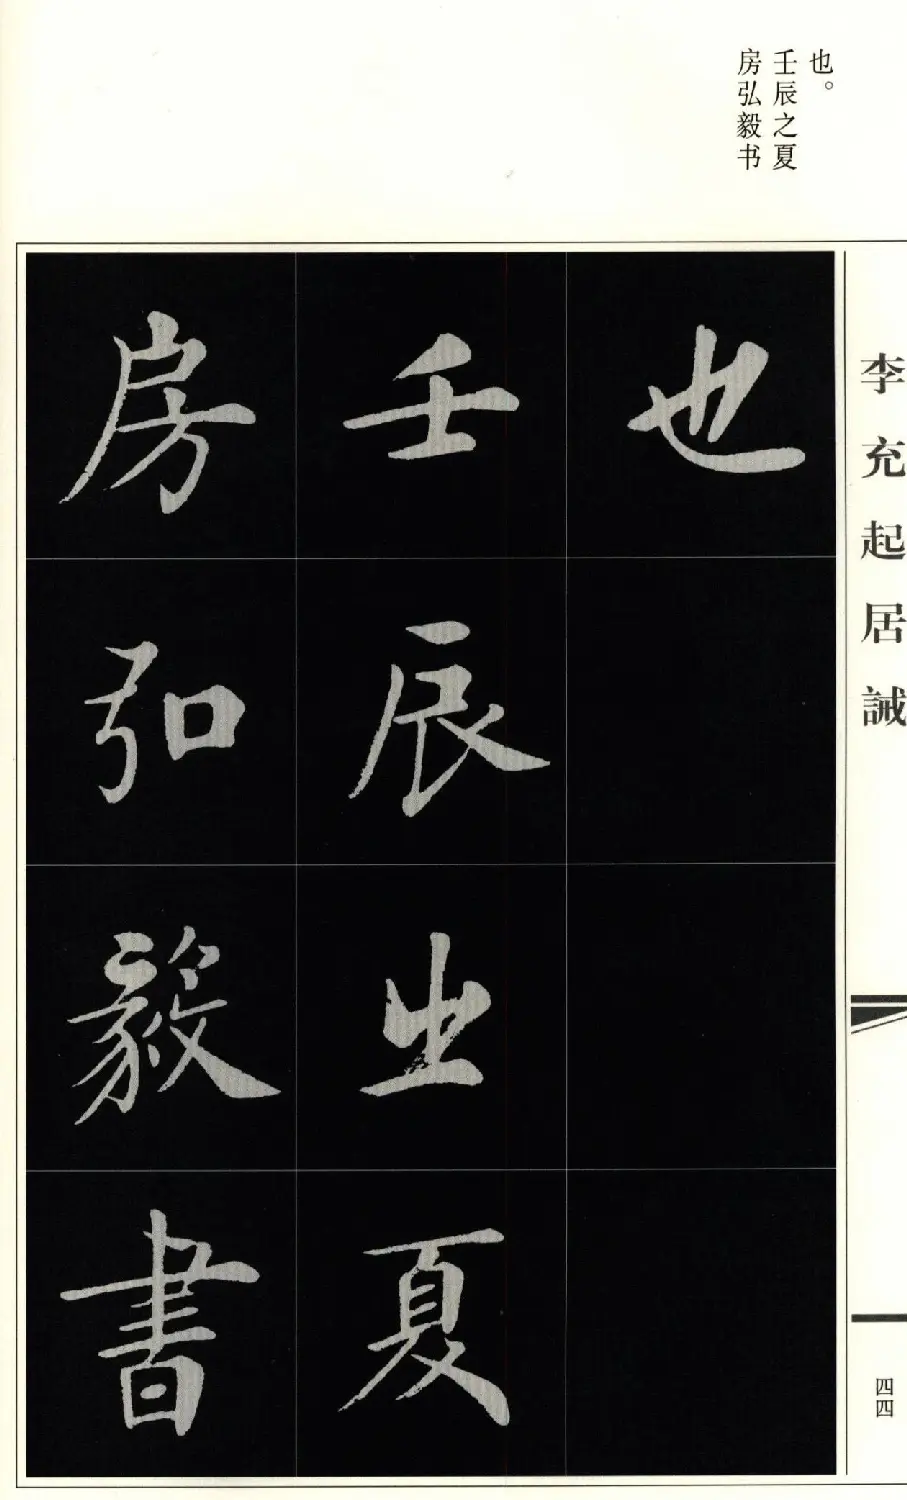 也。
壬辰之夏
房弘毅书
李充起居誡
也
壬辰之夏
房弘毅書
四四